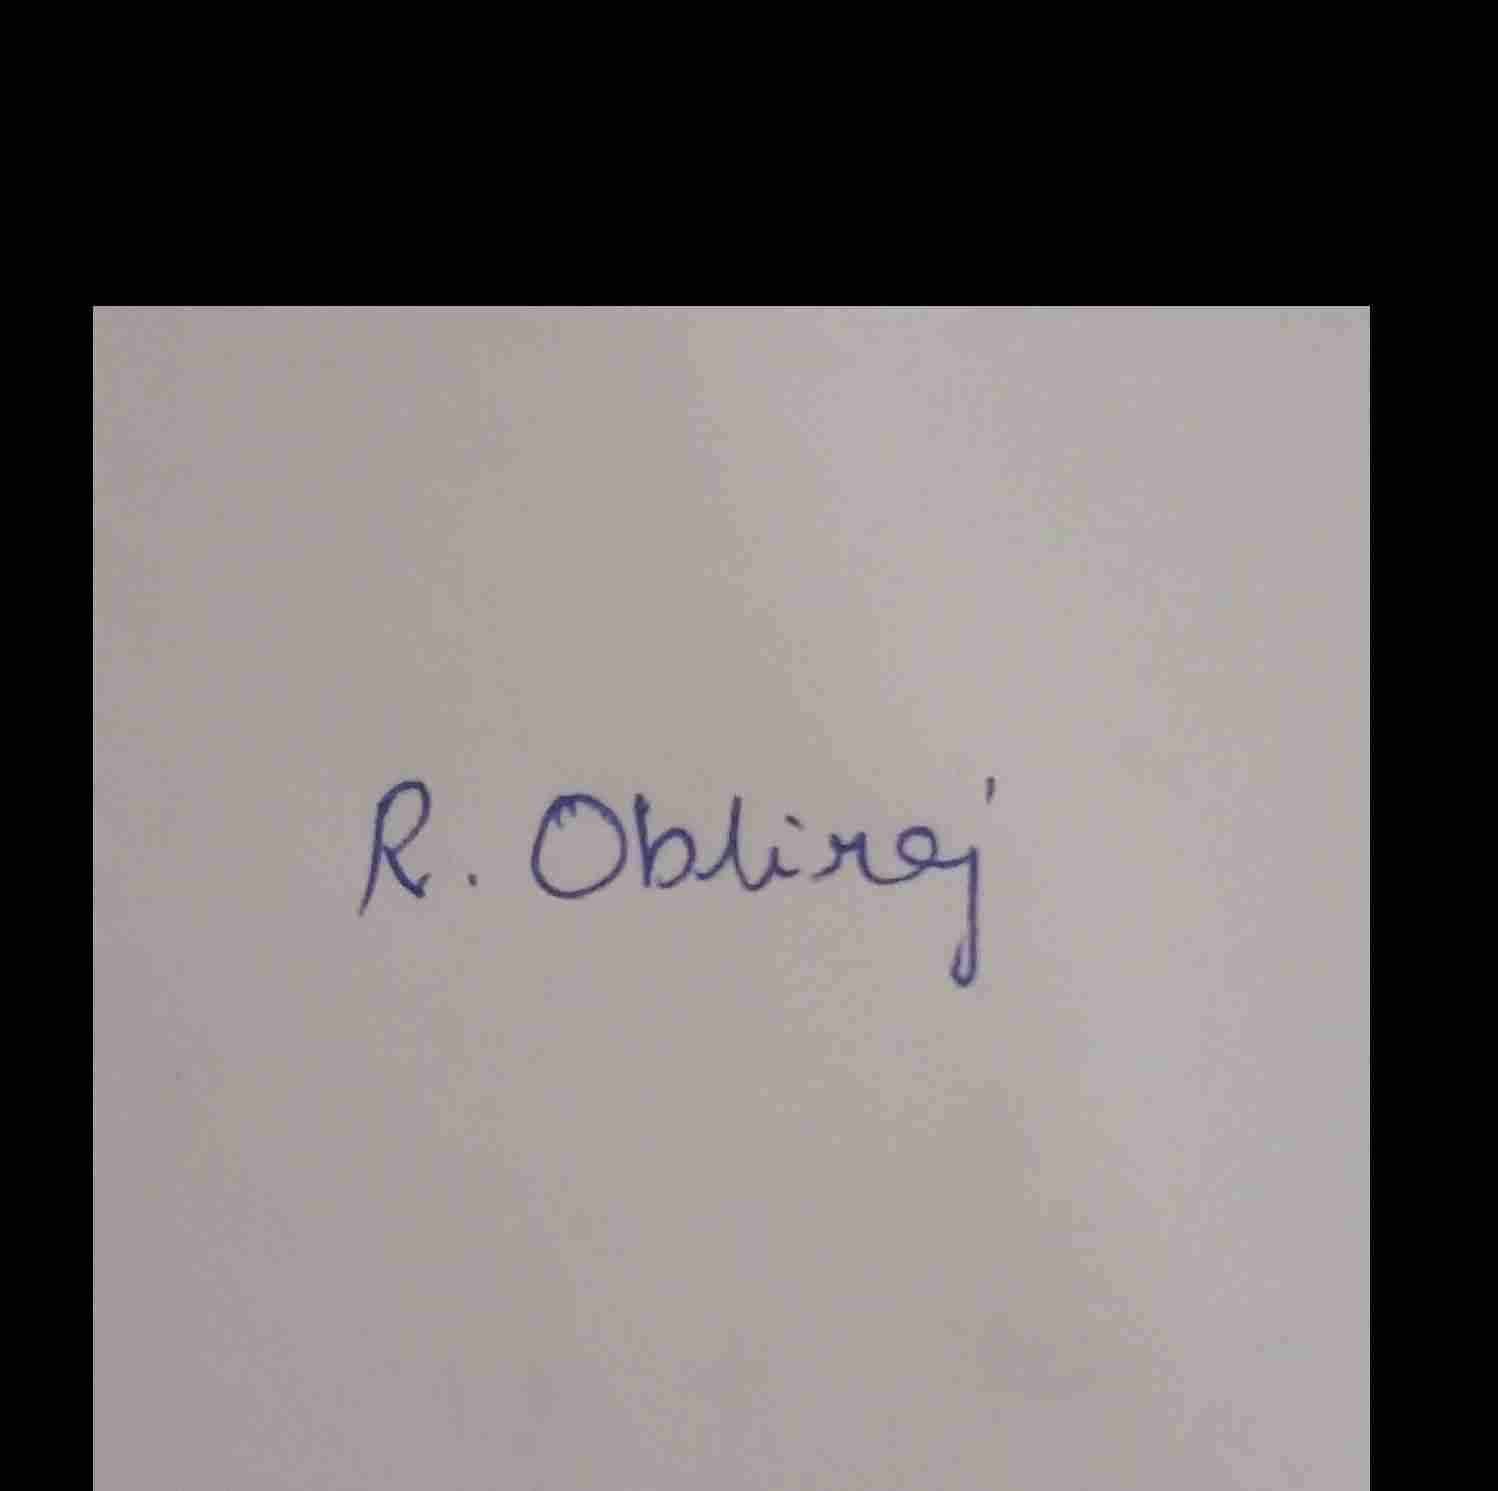 R. Obliraj